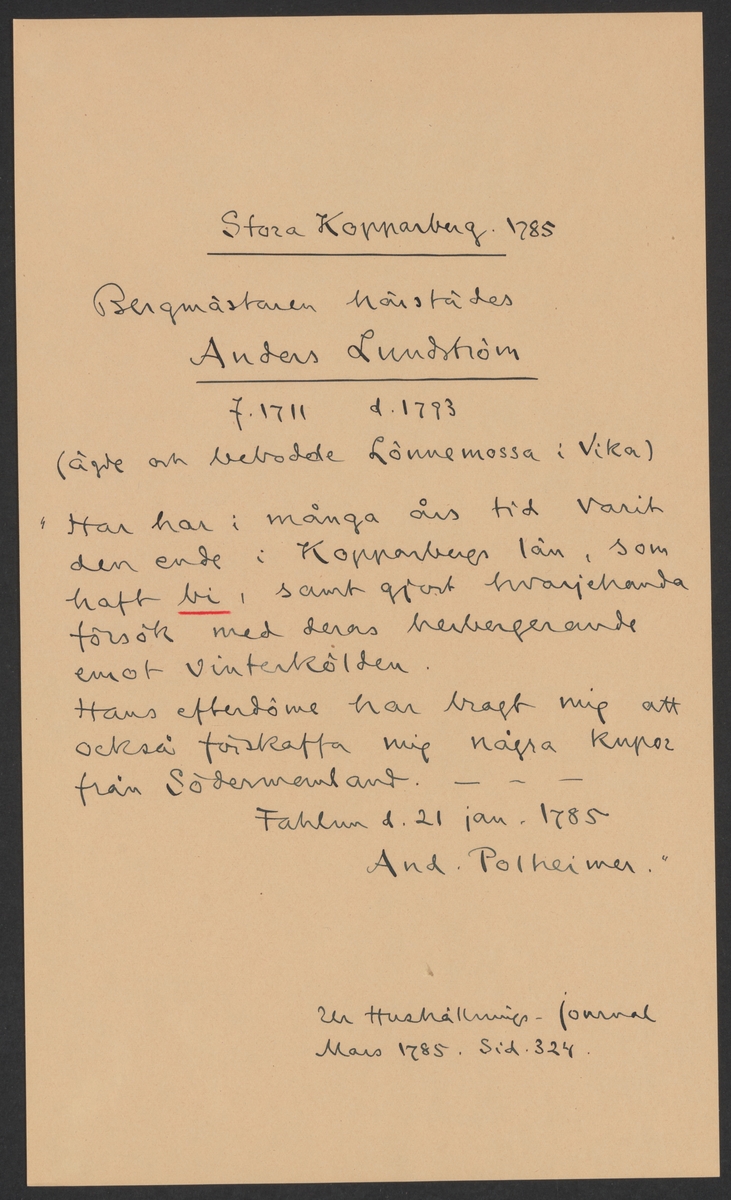 Stora Kopparberg. 1785
Bergmästaren härstädes
Anders Lundström
f. 1711 d. 1793
(ägde och bebodde Lönnemossa i Vika)
" Han har i många års tid varit
den ende i Kopparbergs län, som
haft bi, samt gjort hvarjehanda
försök med deras herbergerande
emot vinterkölden.
Hans efterdöme har bragt mig att
också förskaffa mig några kupor
från Södermanland. — – —
Fahlun d. 21 jan. 1785
And. Polheimer."
Ur Hushållnings-journal
Mars 1785. Sid. 324.